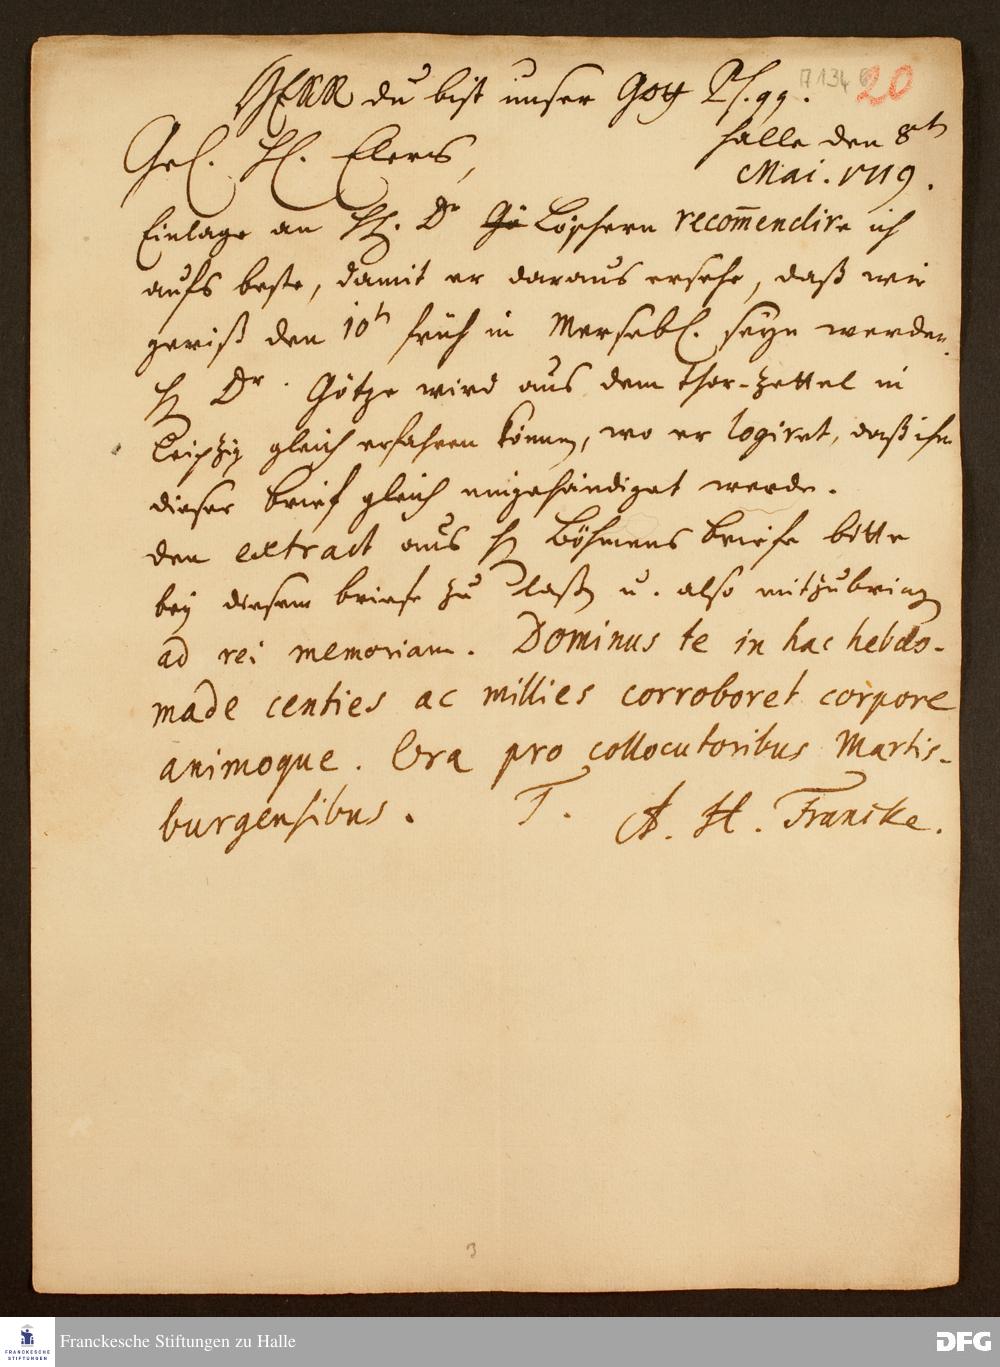 HERR du bist unser Gott Ps. 99. 20
Gel. H. Elers, Halle den 8th
Mai. 1719.
Einlage an H. Dr Gö Löschern recom̄endire ich
aufs beste, damit er daraus ersehe, daß wir
gewiß den 10h früh in Mersebl. seyn werden.
H Dr. Götze wird aus dem Thor-Zettel in
Leipzig gleich erfahren können, wo er logiret, daß ihm
dieser brief gleich eingehändiget werde.
den extract aus H Böhmens briefe bitte
bey diesem briefe zu laßen u. also mitzubringen
ad rei memoriam. Dominus te in hac hebdo-
made centies ac millies corroboret corpore
animoque. Ora pro collocutoribus Martis-
burgensibus. T. A. H. Francke.
3
FRANCKESCHE
STIFTUNGEN
Franckesche Stiftungen zu Halle
DFG